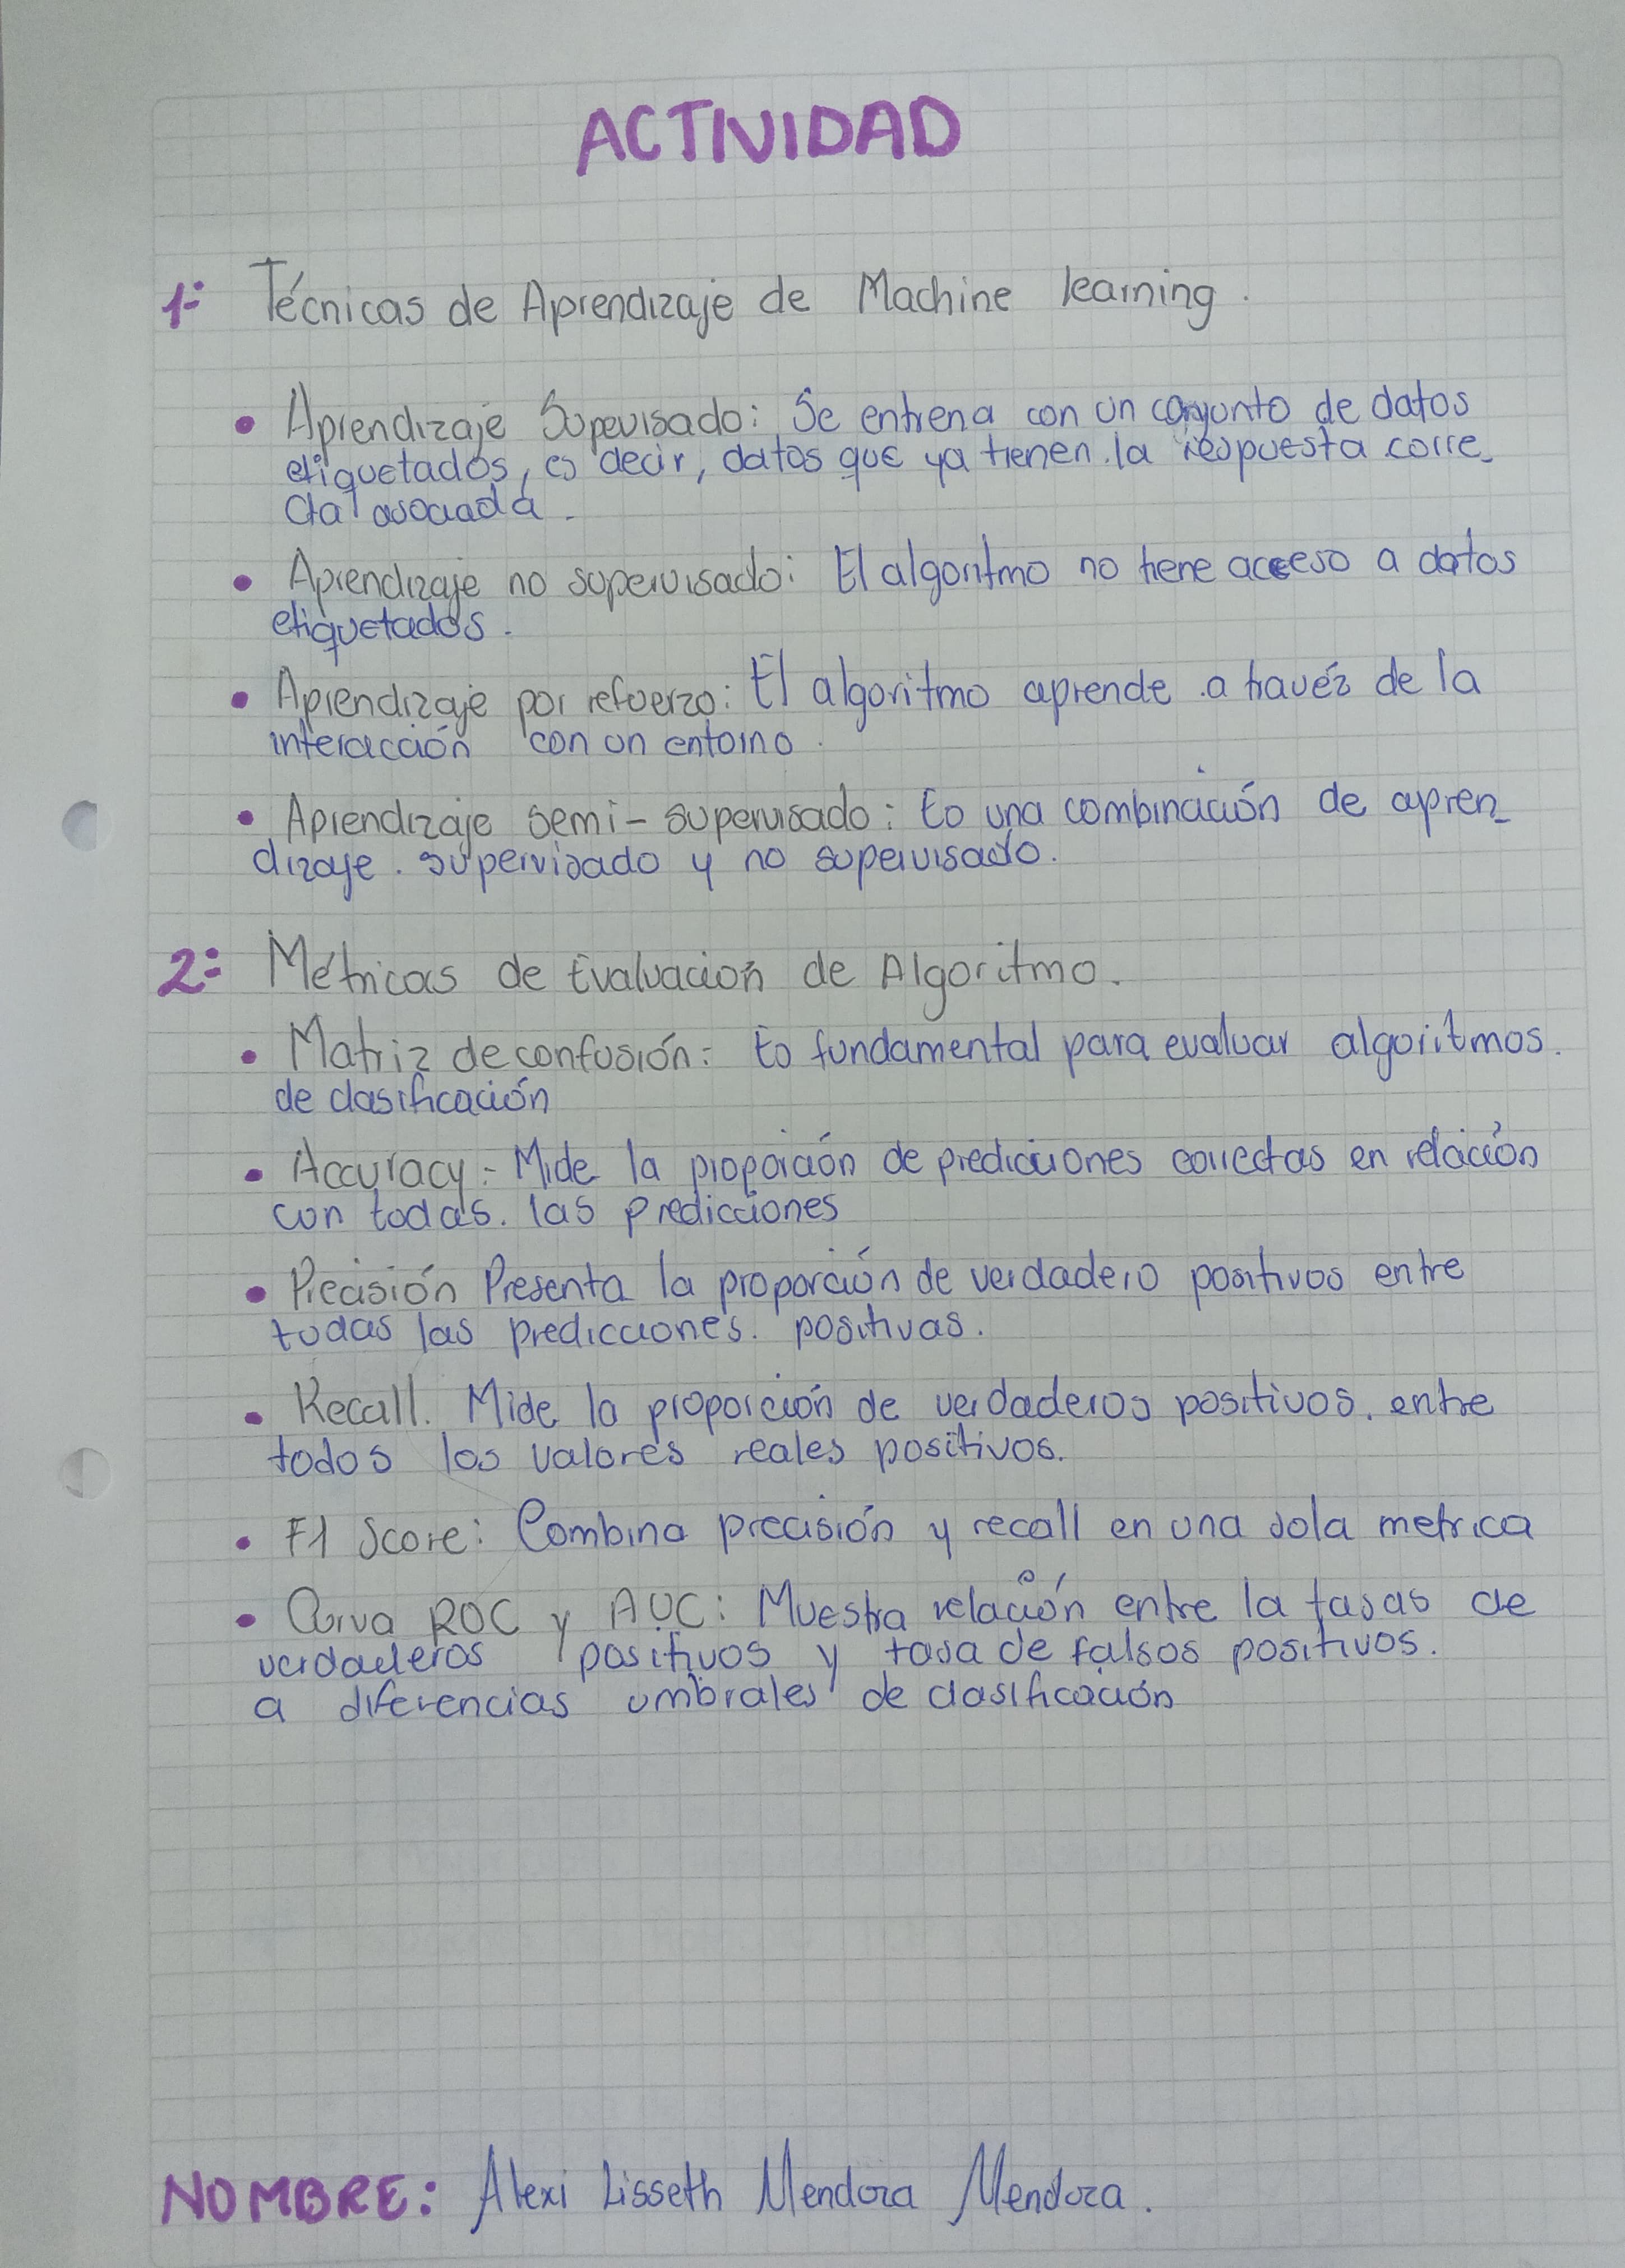 ACTIVIDAD
1-: Técnicas de Aprendizaje de Machine learning.
• Aprendizaje Supevisado: Se entrena con un conjunto de datos
etiquetados, es decir, datos que ya tienen. la respuesta corre_
cta asociada.
• Aprendizaje no supervisado: El algoritmo no tiene acceso a datos
etiquetados.
• Aprendizaje por refuerzo: El algoritmo aprende a travéz de la
interacción con un entorno.
• Aprendizaje semi-supervisado: Es una combinación de apren_
dizaje. supervisado y no supervisado.
2-: Métricas de Evaluación de Algoritmo.
• Matriz de confusión: Es fundamental para evaluar algoritmos.
de clasificación
• Accuracy:- Mide la proporción de predicciones correctas en relación
con todas. las predicciones
• Precisión Presenta la proporción de verdadero positivos entre
todas las predicciones. positivas.
• Recall. Mide la proporción de verdaderos positivos. entre
todos los valores reales positivos.
• F1 Score: Combina precisión y recall en una sola metrica
• Curva ROC y AUC: Muestra relación entre la tasas de
verdaderos positivos y tasa de falsos positivos.
a diferencias umbrales de clasificación
NOMBRE: Alexi Lisseth Mendoza Mendoza.